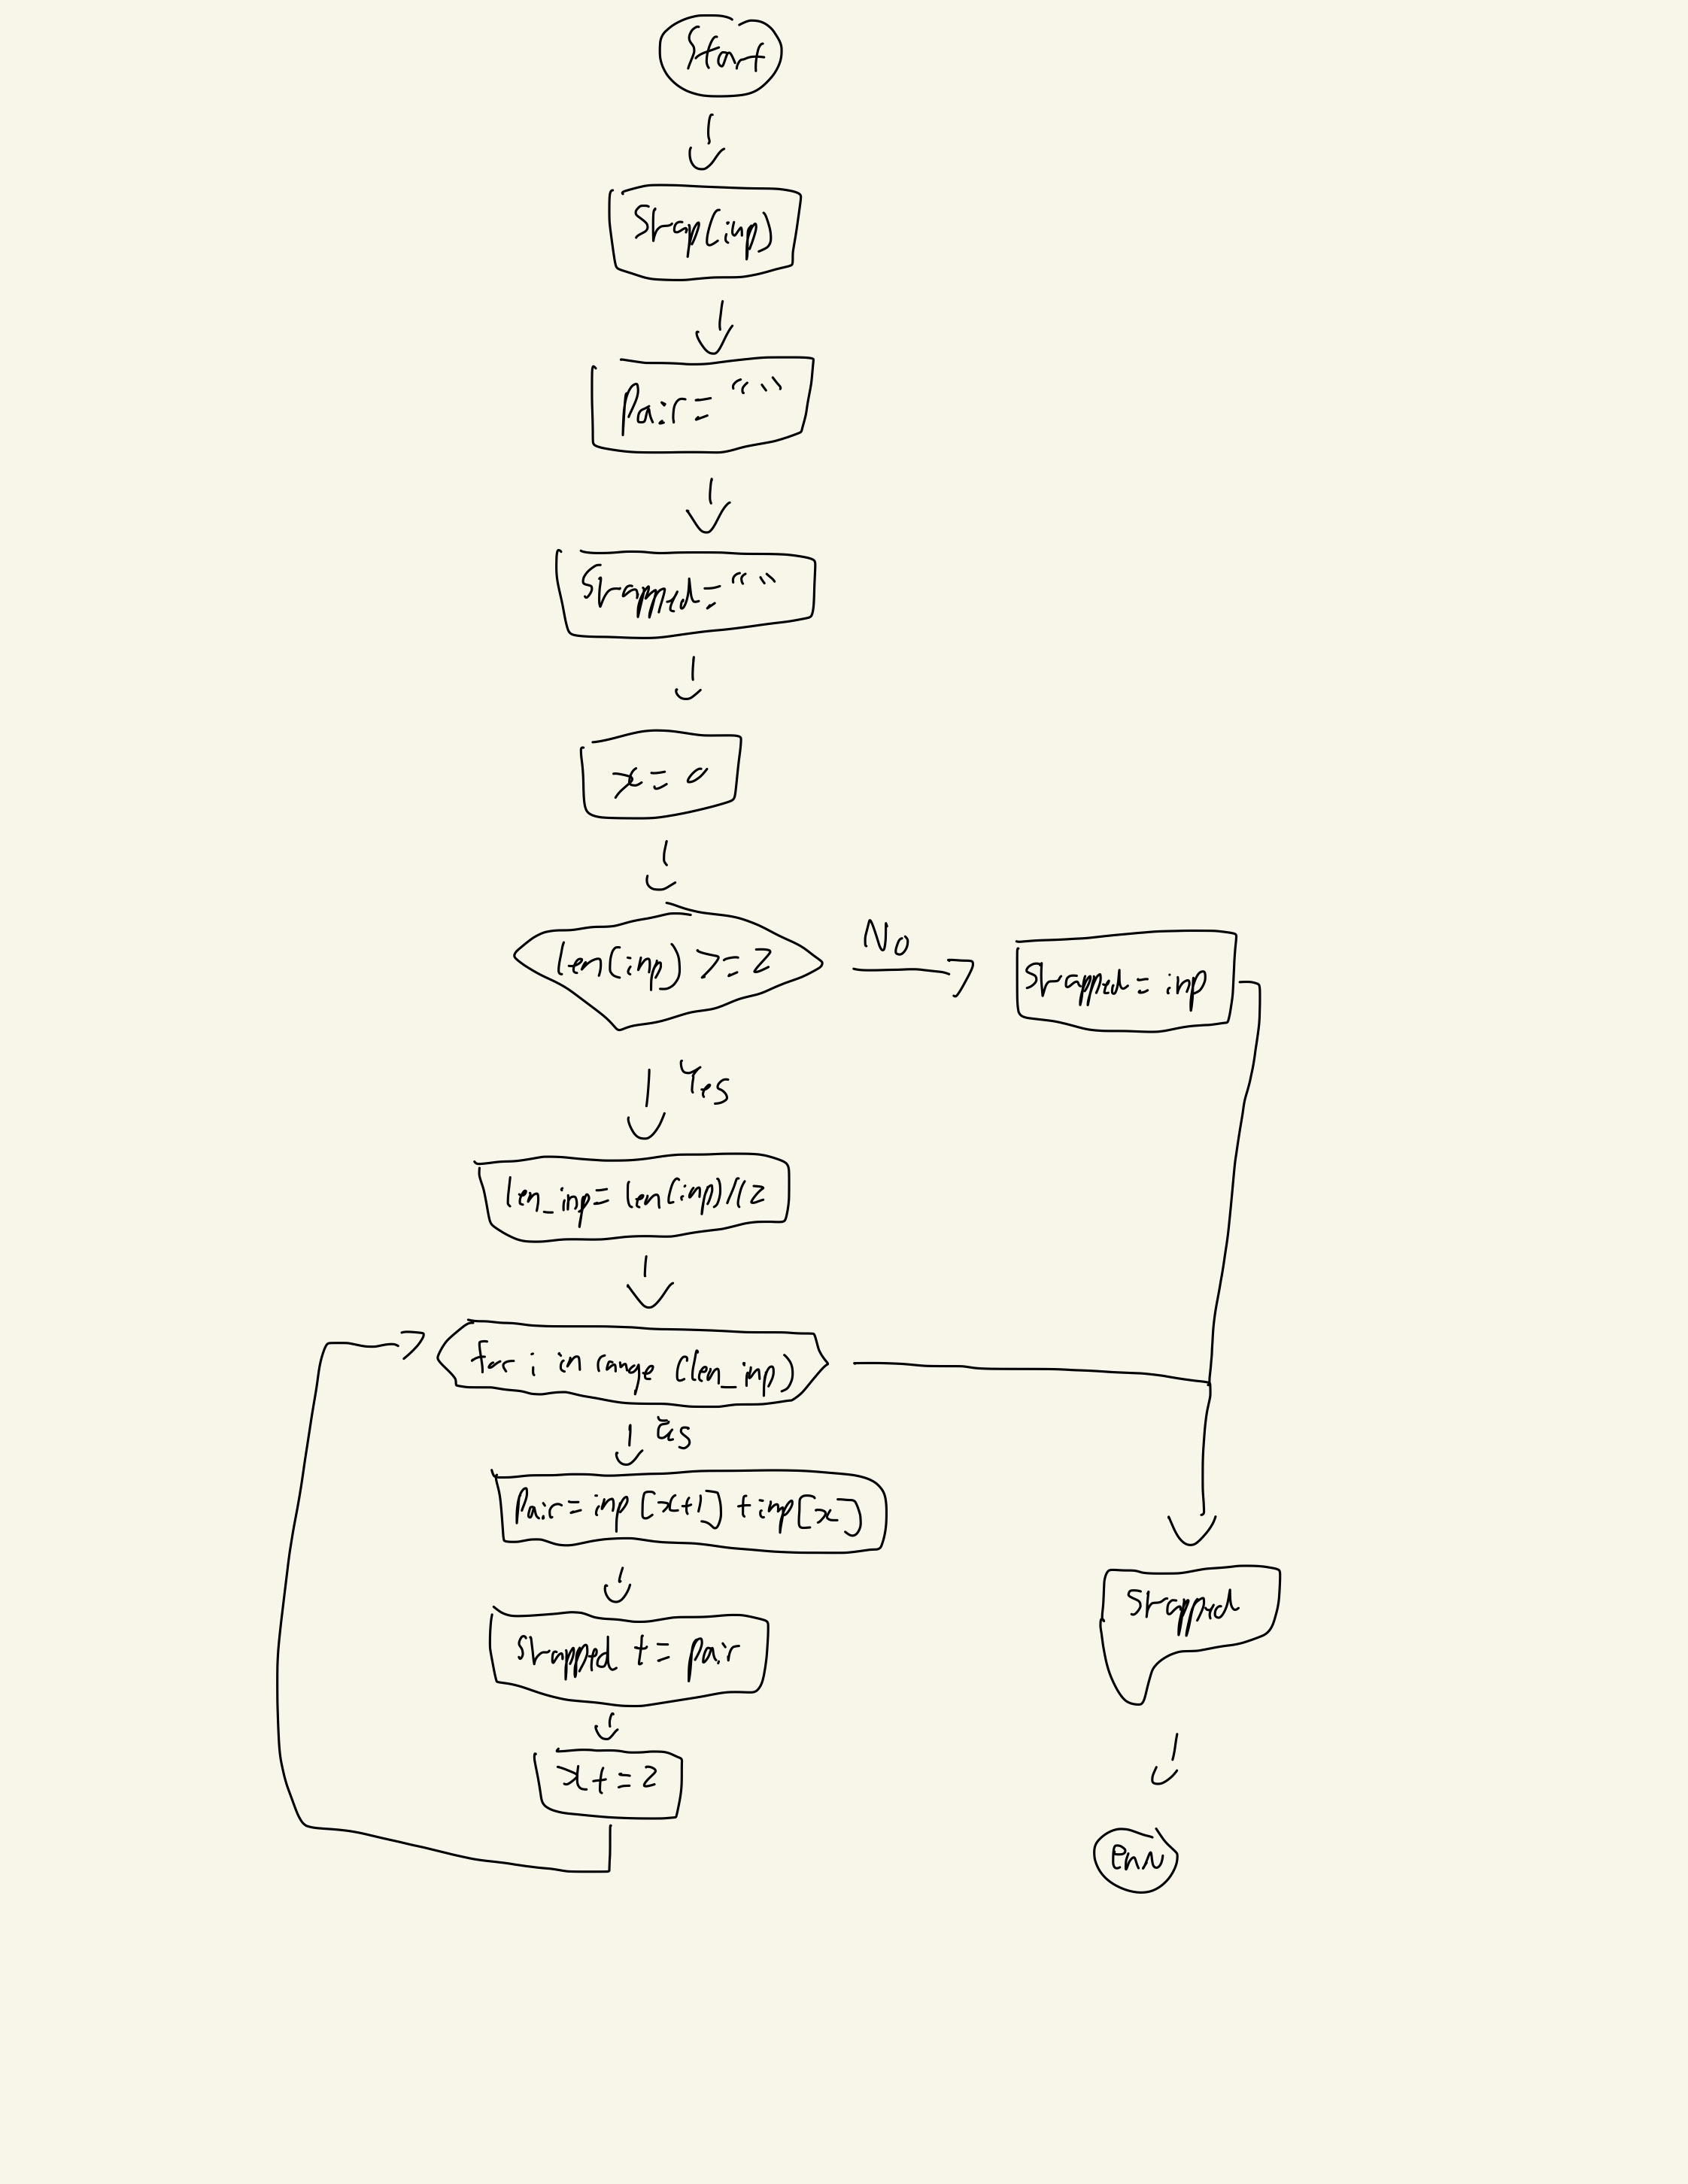 Start
Swap(inp)
Pair = “ ”
Swapped = “ ”
x = 0
len(inp) >= 2
No
Swapped = inp
Yes
len_inp = len(inp)//2
for i in range (len_inp)
Pair = inp[x+1] + inp[x]
swapped += pair
swapped
x += 2